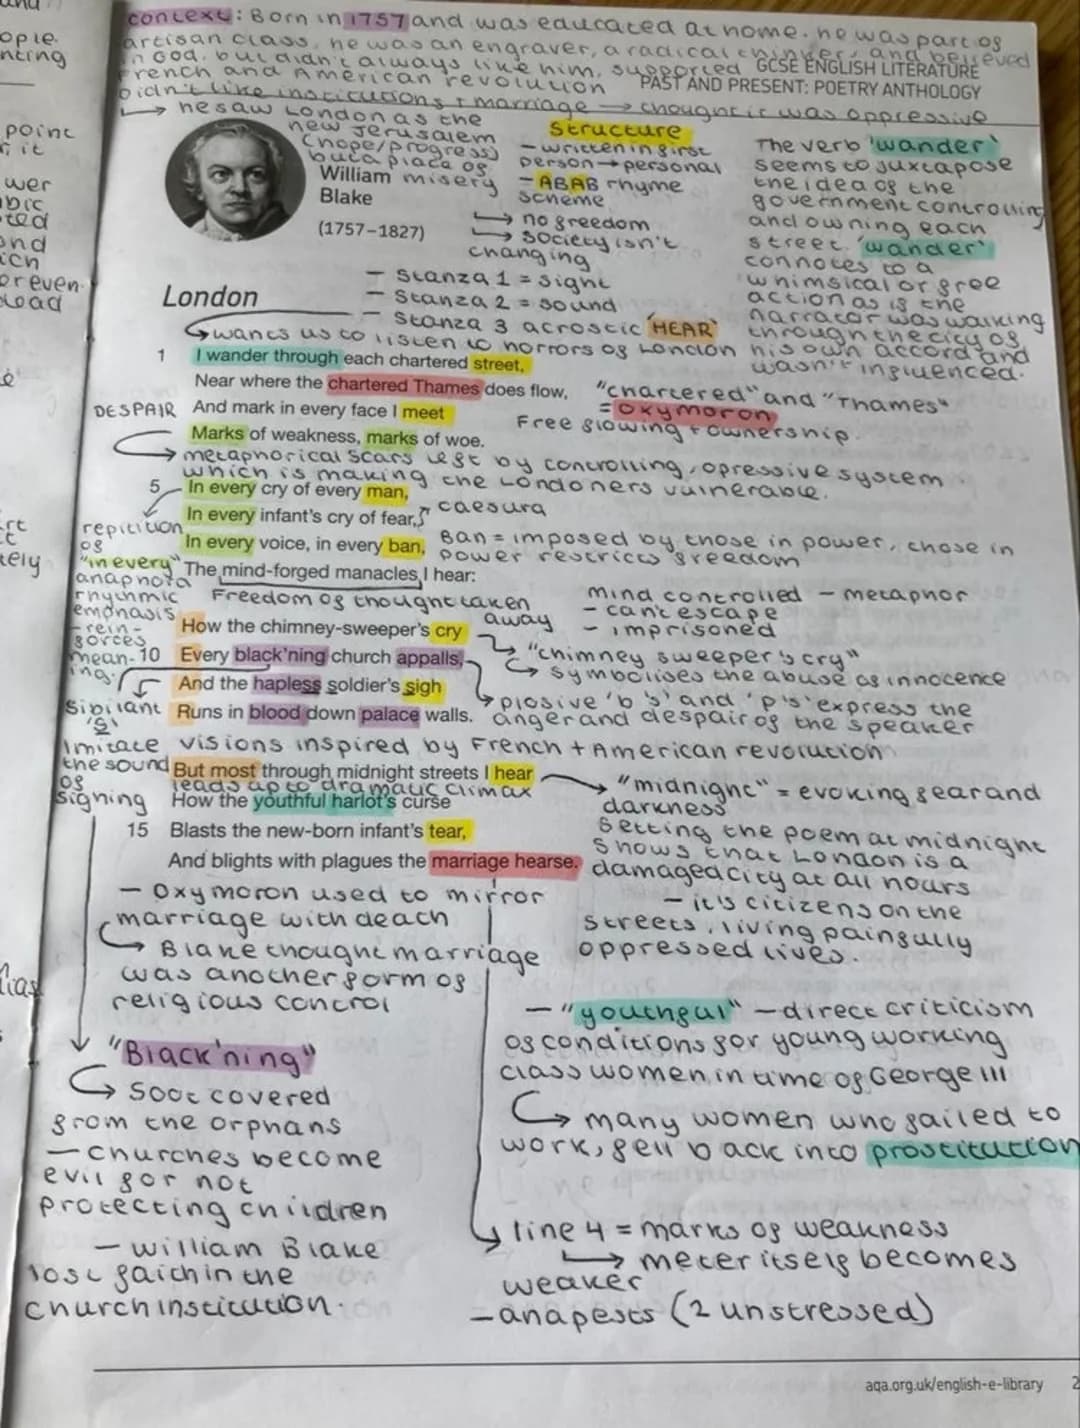 context: Born in 1757 and was educated at home. he was part of
artisan class, he was an engraver, a radical thinker, and believed
in God, but didn't always like him, supported
French and American revolution
GCSE ENGLISH LITERATURE
PAST AND PRESENT: POETRY ANTHOLOGY
Didn't like institutions + marriage → thought it was oppressive
→ he saw London as the
new Jerusalem
(hope/progress)
but a place of
misery
William
Blake
(1757–1827)
Structure
- written in first
person → personal
- ABAB rhyme
scheme
→ no freedom
→ society isn't
changing
- Stanza 1 = sight
- Stanza 2 = sound
- Stanza 3 acrostic 'HEAR'
→ wants us to listen to horrors of London
The verb 'wander'
seems to juxtapose
the idea of the
government controlling
and owning each
street. 'wander'
connotes to a
whimsical or free
action as if the
narrator was walking
through the city of
his own accord and
wasn't influenced.
London
1 I wander through each chartered street,
Near where the chartered Thames does flow,
"chartered" and "Thames"
= oxymoron
Free flowing + ownership.
DESPAIR And mark in every face I meet
Marks of weakness, marks of woe.
→ metaphorical scars left by controlling, opressive system
which is making the Londoners vulnerable.
5 In every cry of every man,
In every infant's cry of fear, caesura
In every voice, in every ban,
Ban = imposed by those in power, those in
power restricts freedom
The mind-forged manacles I hear:
repitition
of
"in every"
anaphora
rhythmic
emphasis
- rein-
forces
mean-
ing.
Freedom of thought taken
away
mind controlled - metaphor
- can't escape
- imprisoned
How the chimney-sweeper's cry
10 Every black'ning church appalls,
And the hapless soldier's sigh
Runs in blood down palace walls.
→ "chimney sweeper's cry"
→ symbolises the abuse of innocence
→ plosive 'b's' and 'p's' express the
anger and despair of the speaker
sibilant
's'
imitate
the sound
of
signing
visions inspired by French + American revolution
But most through midnight streets I hear
leads up to dramatic climax
How the youthful harlot's curse
15 Blasts the new-born infant's tear,
And blights with plagues the marriage hearse.
→ "midnight" = evoking fear and
darkness
Setting the poem at midnight
shows that London is a
damaged city at all hours
- it's citizens on the
streets, living painfully
oppressed lives.
- Oxymoron used to mirror
marriage with death
→ Blake thought marriage
was another form of
religious control
"Black'ning"
→ Soot covered
from the orphans
- churches become
evil for not
protecting children
- William Blake
lost faith in the
church institution.
- "youthful" - direct criticism
of conditions for young working
class women, in time of George III
→ many women who failed to
work, fell back into prostitution
→ line 4 = marks of weakness
→ meter itself becomes
weaker
- anapests (2 unstressed)
aqa.org.uk/english-e-library 2